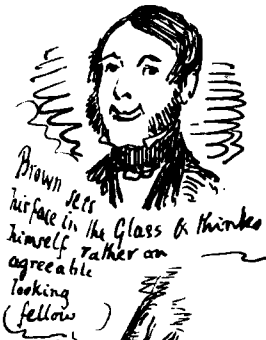 Brown sees
his face in the Glass & thinks
himself rather an
agreeable
looking
(fellow)